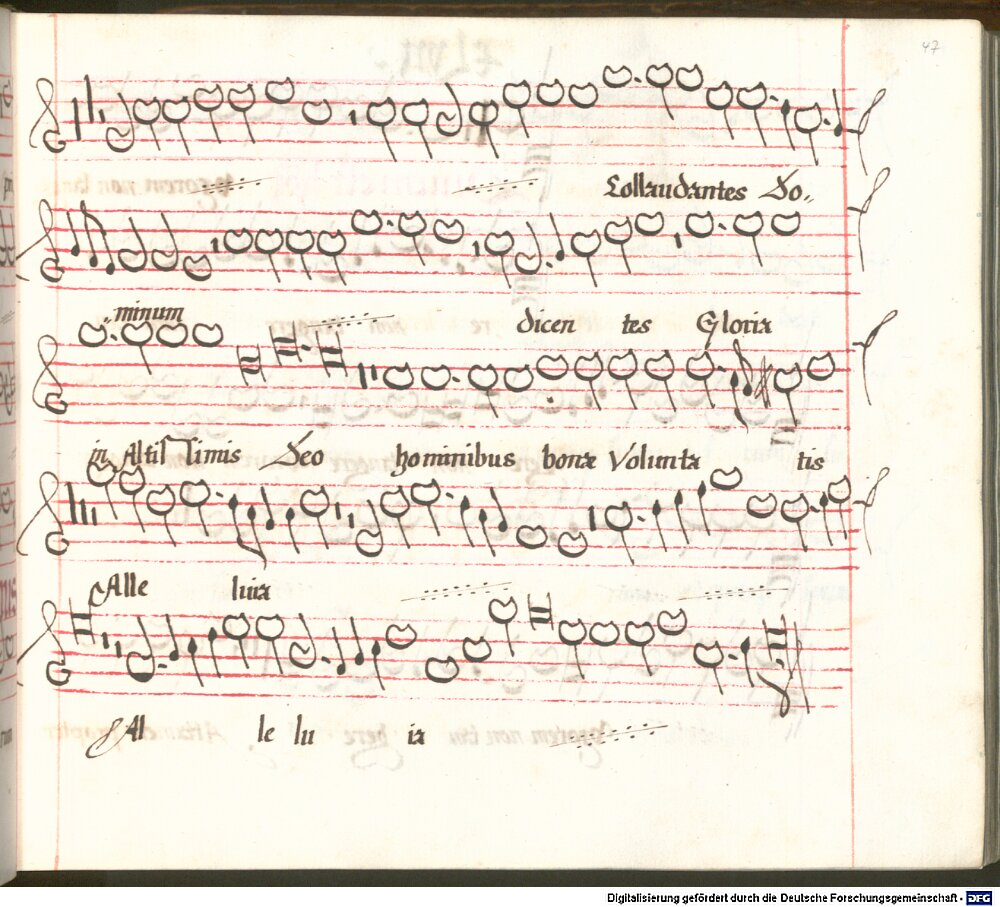 47
Collaudantes Do„
„minum dicen tes Gloria
in Altissimis Deo hominibus bonæ Volunta tis
Alle luia
Al le lu ia
Digitalisierung gefördert durch die Deutsche Forschungsgemeinschaft - DFG